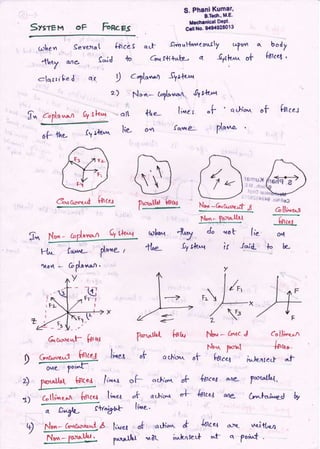 S. Phani Kumar,
B.Tech., M.E.
Mechanical Dept.
Cell No. 9494925013
SYSTEM OF FORCES
When Several forces act Simultaneously upon a body
they are Said to Constitute a System of forces.
classified as 1) Coplanar System
2) Non-Coplanar System
In Coplanar System all the lines of action of forces
of the System lie on Same plane.
F3 F2 F1
Concurrent forces
Parallel forces
Non-Concurrent &
Non-Parallel
Collinear
forces
In Non-Coplanar System when they do not lie on
the Same plane, the System is Said to be
non-Coplanar.
Y
X
Z
F1 F2 F3
F
F
Concurrent forces
Parallel forces
Non-Conc &
Non paral
Collinear
forces
1) Concurrent forces lines of action of forces intersect at
one point
2) parallel forces lines of action of forces are parallel.
3) Collinear forces lines of action of forces are Contained by
a Single straight line.
4) Non-Concurrent & lines of action of forces are neither
Non-parallel. parallel nor intersect at a point.